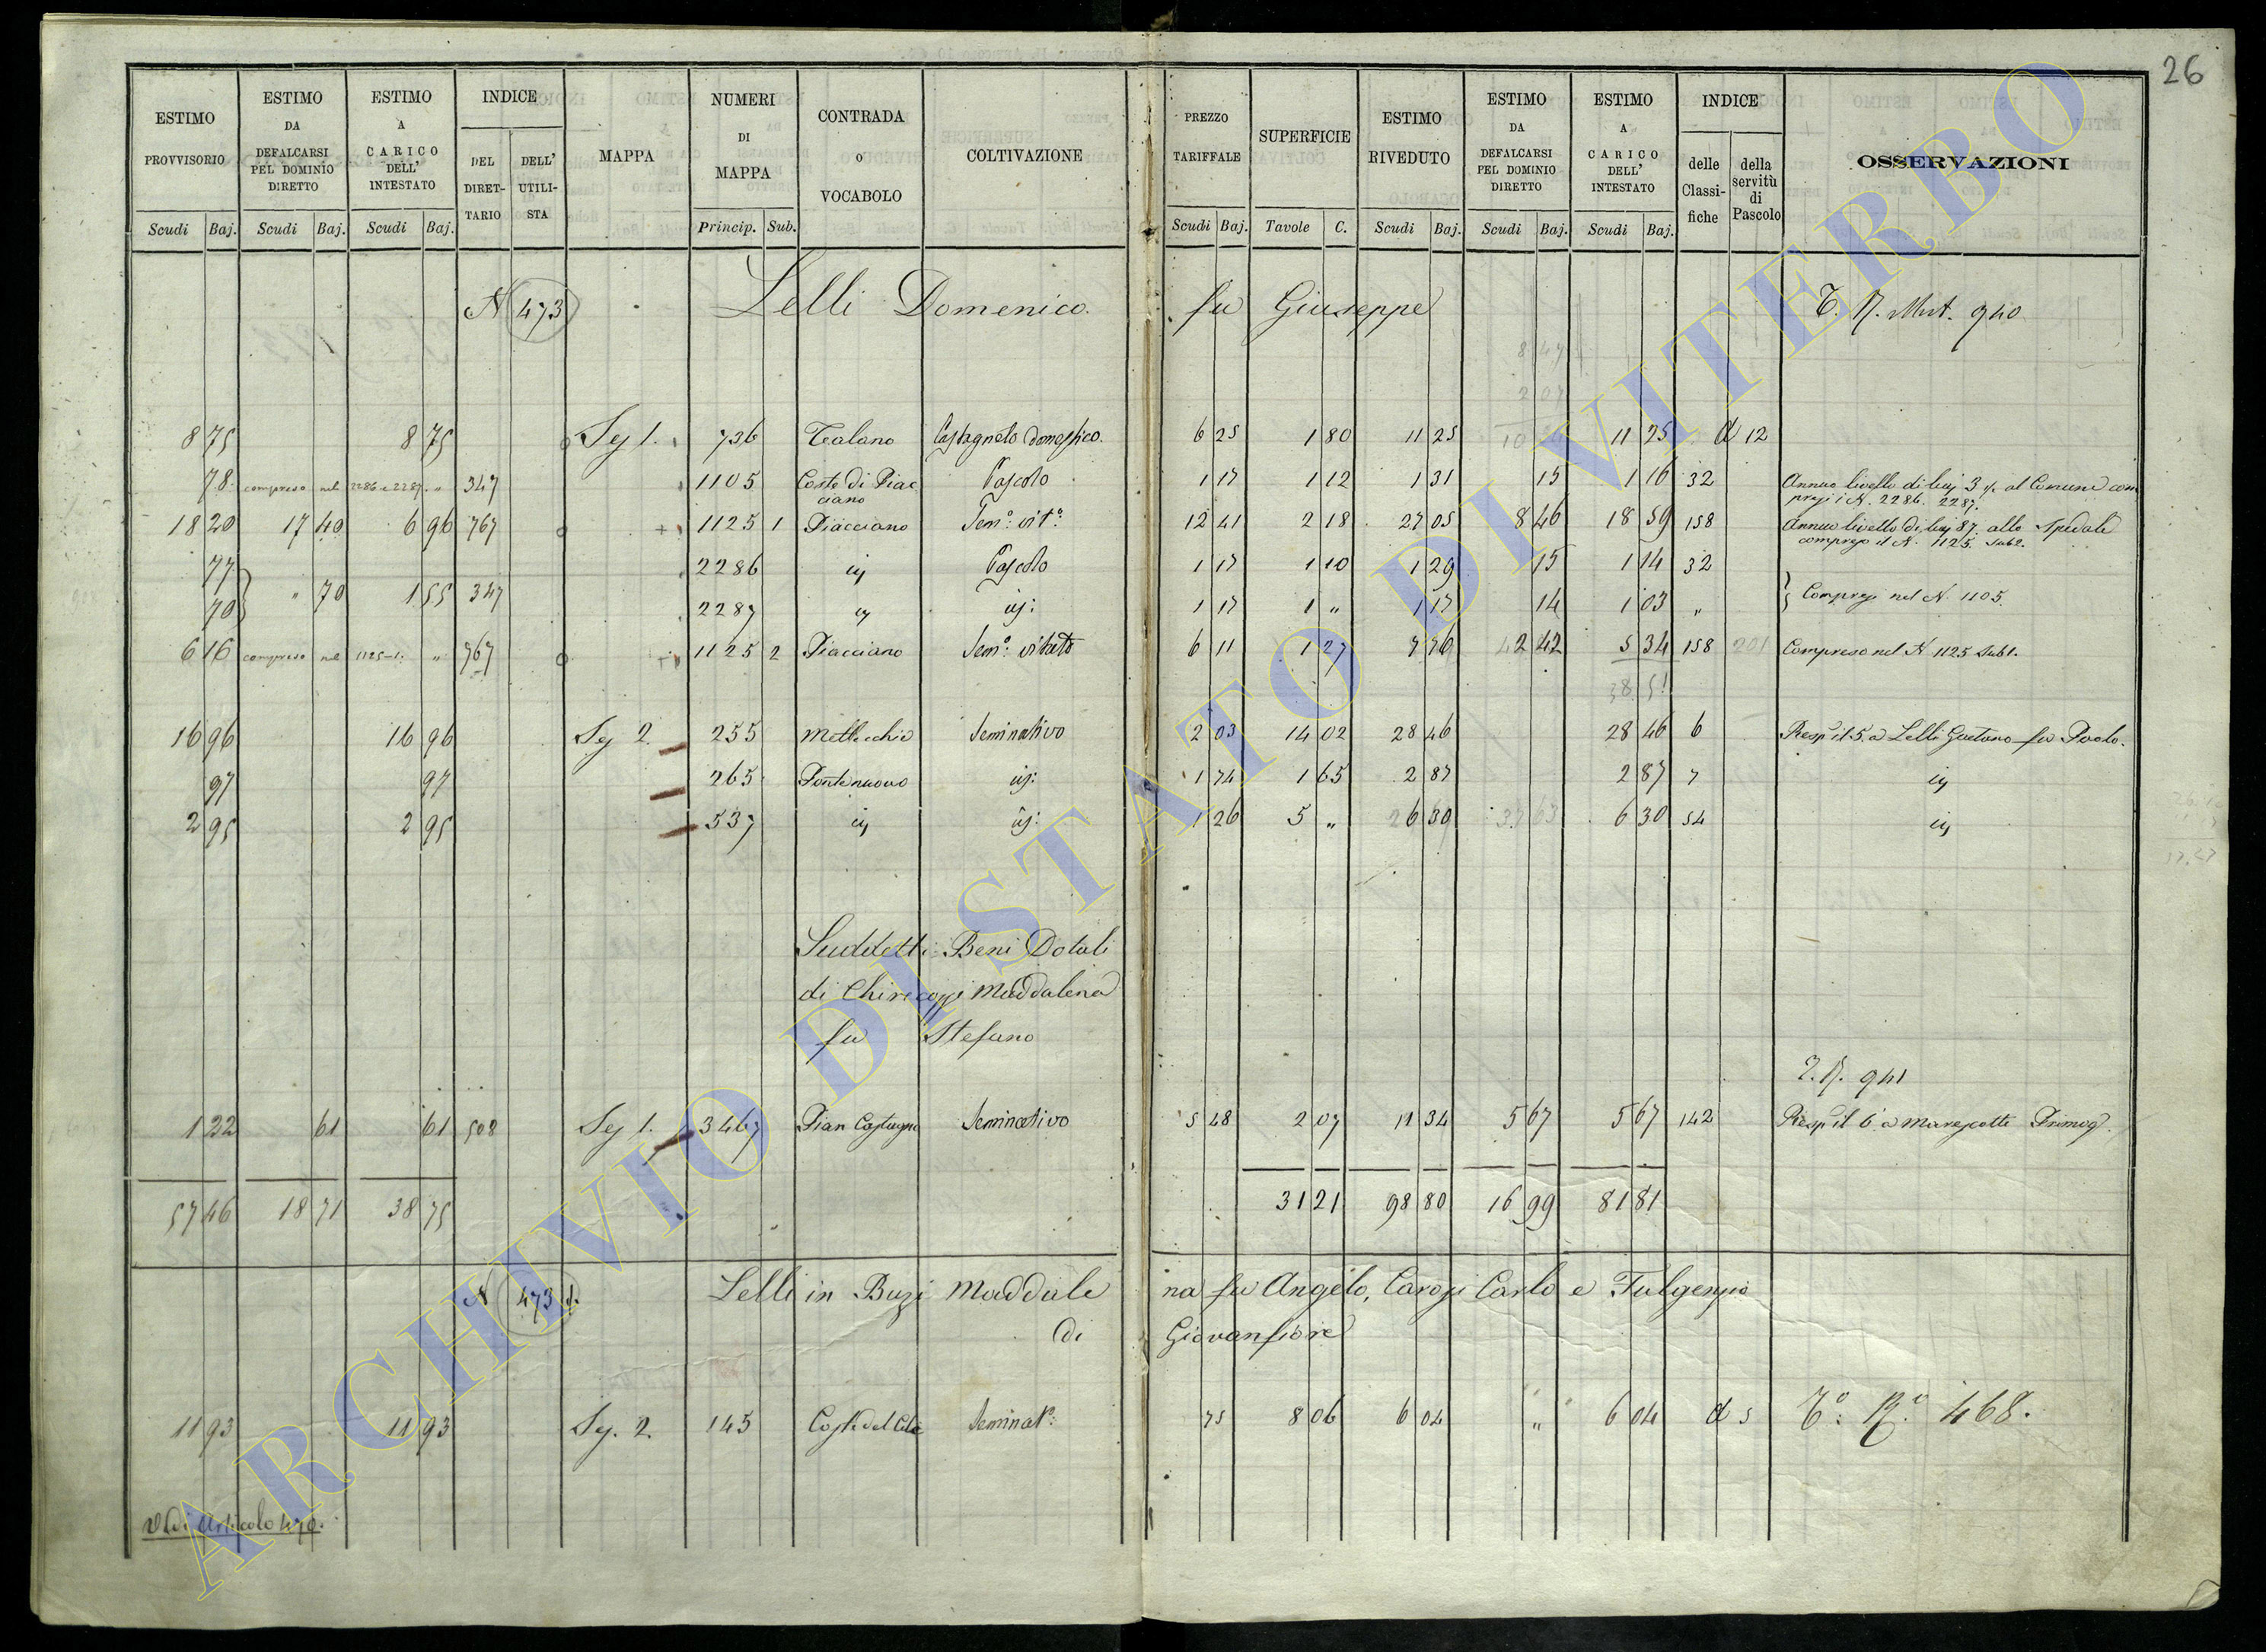 26
ESTIMO PROVVISORIO | ESTIMO DA DEFALCARSI PEL DOMINIO DIRETTO | ESTIMO A CARICO DELL' INTESTATO | INDICE DEL DIRETTARIO | DELL' UTILISTA | MAPPA | NUMERI DI MAPPA | CONTRADA O VOCABOLO | COLTIVAZIONE | PREZZO TARIFFALE | SUPERFICIE | ESTIMO RIVEDUTO | ESTIMO DA DEFALCARSI PEL DOMINIO DIRETTO | ESTIMO A CARICO DELL' INTESTATO | INDICE delle Classifiche | della servitù di Pascolo | OSSERVAZIONI
Scudi Baj. | Scudi Baj. | Scudi Baj. | Princip. Sub. | Scudi Baj. | Tavole C. | Scudi Baj. | Scudi Baj. | Scudi Baj.
N 473 Lelli Domenico fu Giuseppe T. N. Mut. 940
8 75 | 8 75 | Sez 1. | 736 | Talano | Castagneto domestico | 6 25 | 1 80 | 11 25 | 11 25 | d 12
78 | compreso nel 2286 e 2287 " | 347 | 1105 | Coste di Piacciano | Pascolo | 1 17 | 1 12 | 1 31 | 15 | 1 16 | 32 | Annuo livello di baj 3 al Comune compresi i N. 2286. 2287.
18 20 | 17 40 | 6 96 | 767 | + | 1125 1 | Piacciano | Sem.o vit.o | 12 41 | 2 18 | 27 05 | 8 46 | 18 59 | 158 | Annuo livello di baj 87. allo Spedale compreso il N. 1125. Sub 2.
77 | 2286 | id | Pascolo | 1 17 | 1 10 | 1 29 | 15 | 1 14 | 32
" 70 | 1 55 | 347 | Compresi nel N. 1105.
70 | 2287 | id | id: | 1 17 | 1 " | 1 17 | 14 | 1 03 | "
6 16 | compreso nel 1125-1. " | 767 | 1125 2 | Piacciano | Sem.o vitato | 6 11 | 1 27 | 7 76 | 2 42 | 5 34 | 158 | 201 | Compreso nel N 1125 Sub 1.
38 51
16 96 | 16 96 | Sez 2. | 255 | Mettecchie | Seminativo | 2 03 | 14 02 | 28 46 | 28 46 | 6 | Resp. il 5. a Lelli Gaetano fu Paolo.
97 | 97 | 265 | Pontenuovo | id: | 1 74 | 1 65 | 2 87 | 2 87 | 7 | id
2 95 | 2 95 | 537 | id | id: | 1 26 | 5 " | 6 30 | 6 30 | 54 | id
Suddetti Beni Dotali
di Chiricozzi Maddalena
fu Stefano
T. N. 941
1 22 | 61 | 61 | 508 | Sez 1. | 3467 | Pian Castagno | Seminativo | 5 48 | 2 07 | 11 34 | 5 67 | 5 67 | 142 | Resp. il 6. a Marescotti Primog.
57 46 | 18 71 | 38 75 | 31 21 | 98 80 | 16 99 | 81 81
N 473 1. Lelli in Buzi Maddalena fu Angelo, Carosi Carlo e Fulgenzio
di Giovanfiore
11 93 | 11 93 | Sez. 2. | 145 | Coste del | Seminat.o | 75 | 8 06 | 6 04 | " | 6 04 | d 5 | T.o N.o 468.
Vedi Articolo 470.
ARCHIVIO DI STATO DI VITERBO